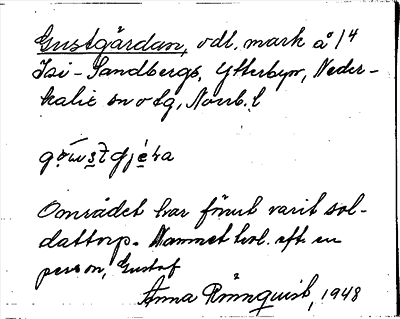 Gustgärdan, odl. mark å 1/4
Isi-Sandbergs, Ytterbyn, Neder-
kalix sn o tg, Norrb. l
Området har förut varit sol-
dattorp. Namnet trol. eft. en
person, Gustaf
Anna Rönnquist, 1948